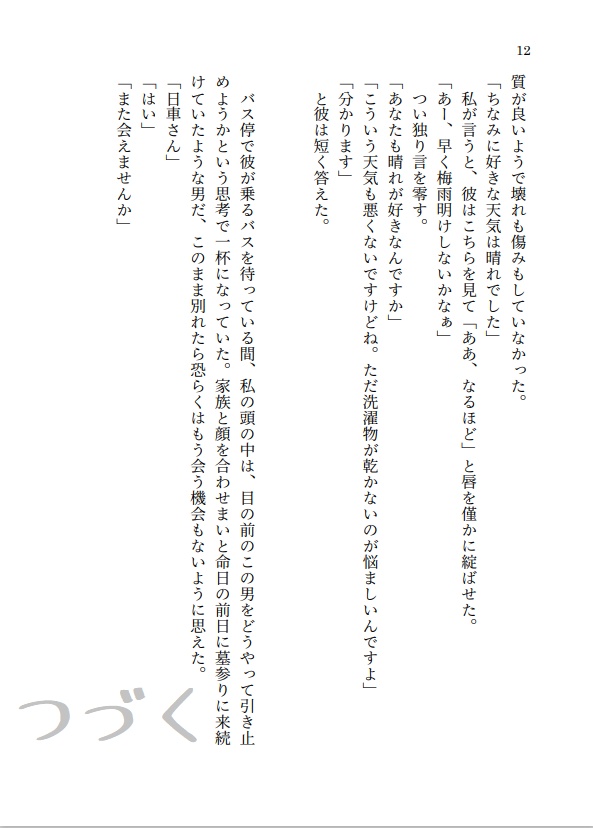 12
質が良いようで壊れも傷みもしていなかった。
「ちなみに好きな天気は晴れでした」
　私が言うと、彼はこちらを見て「ああ、なるほど」と唇を僅かに綻ばせた。
「あー、早く梅雨明けしないかなぁ」
　つい独り言を零す。
「あなたも晴れが好きなんですか」
「こういう天気も悪くないですけどね。ただ洗濯物が乾かないのが悩ましいんですよ」
「分かります」
　と彼は短く答えた。
　バス停で彼が乗るバスを待っている間、私の頭の中は、目の前のこの男をどうやって引き止
めようかという思考で一杯になっていた。家族と顔を合わせまいと命日の前日に墓参りに来続
けていたような男だ、このまま別れたら恐らくはもう会う機会もないように思えた。
「日車さん」
「はい」
「また会えませんか」
つづく